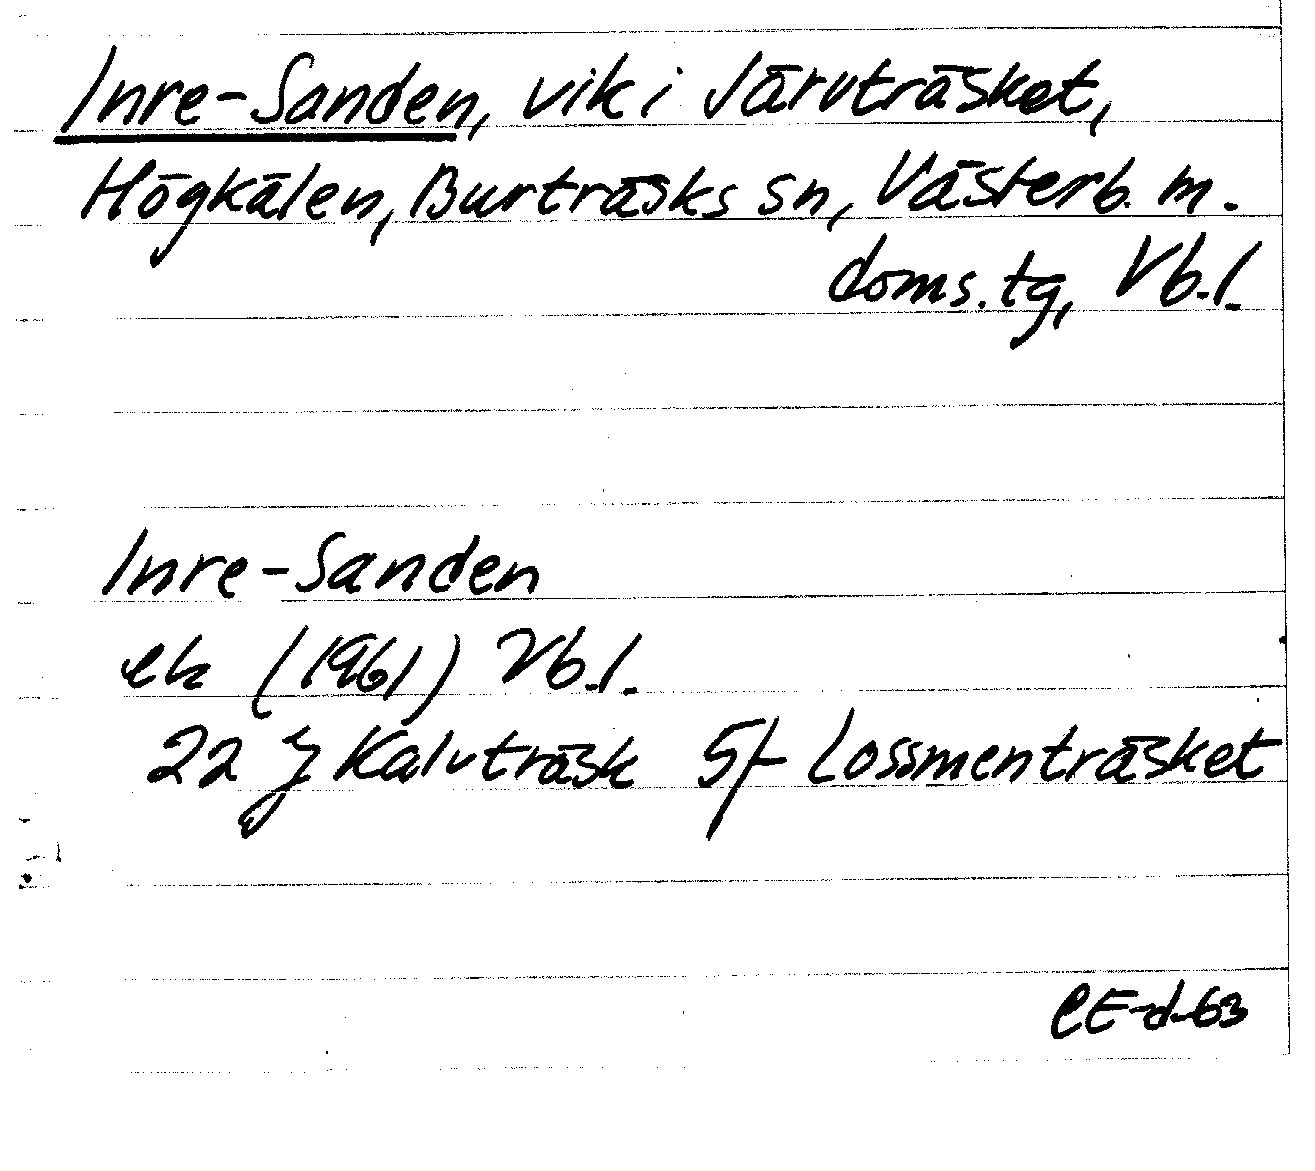 Inre-Sanden, vik i Järvträsket,
Högkälen, Burträsks sn, Västerb. m.
doms. tg, Vb. l.
Inre-Sanden
ek (1961) Vb. l.
22 J Kalvträsk 5f Lossmenträsket
CE-d-63